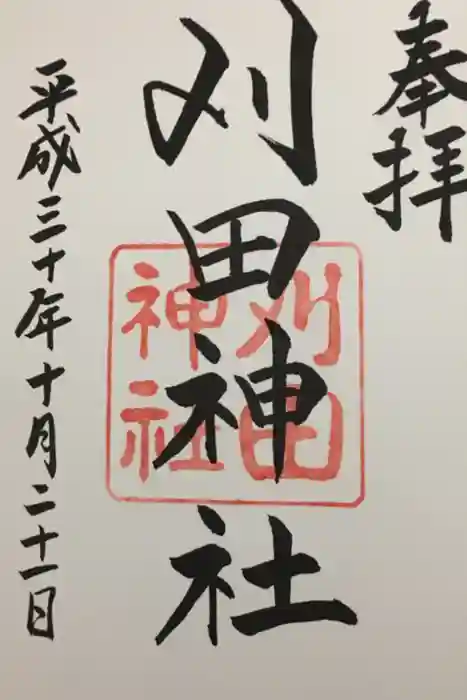 奉拝
刈田神社
刈田
神社
平成三十年十月二十一日